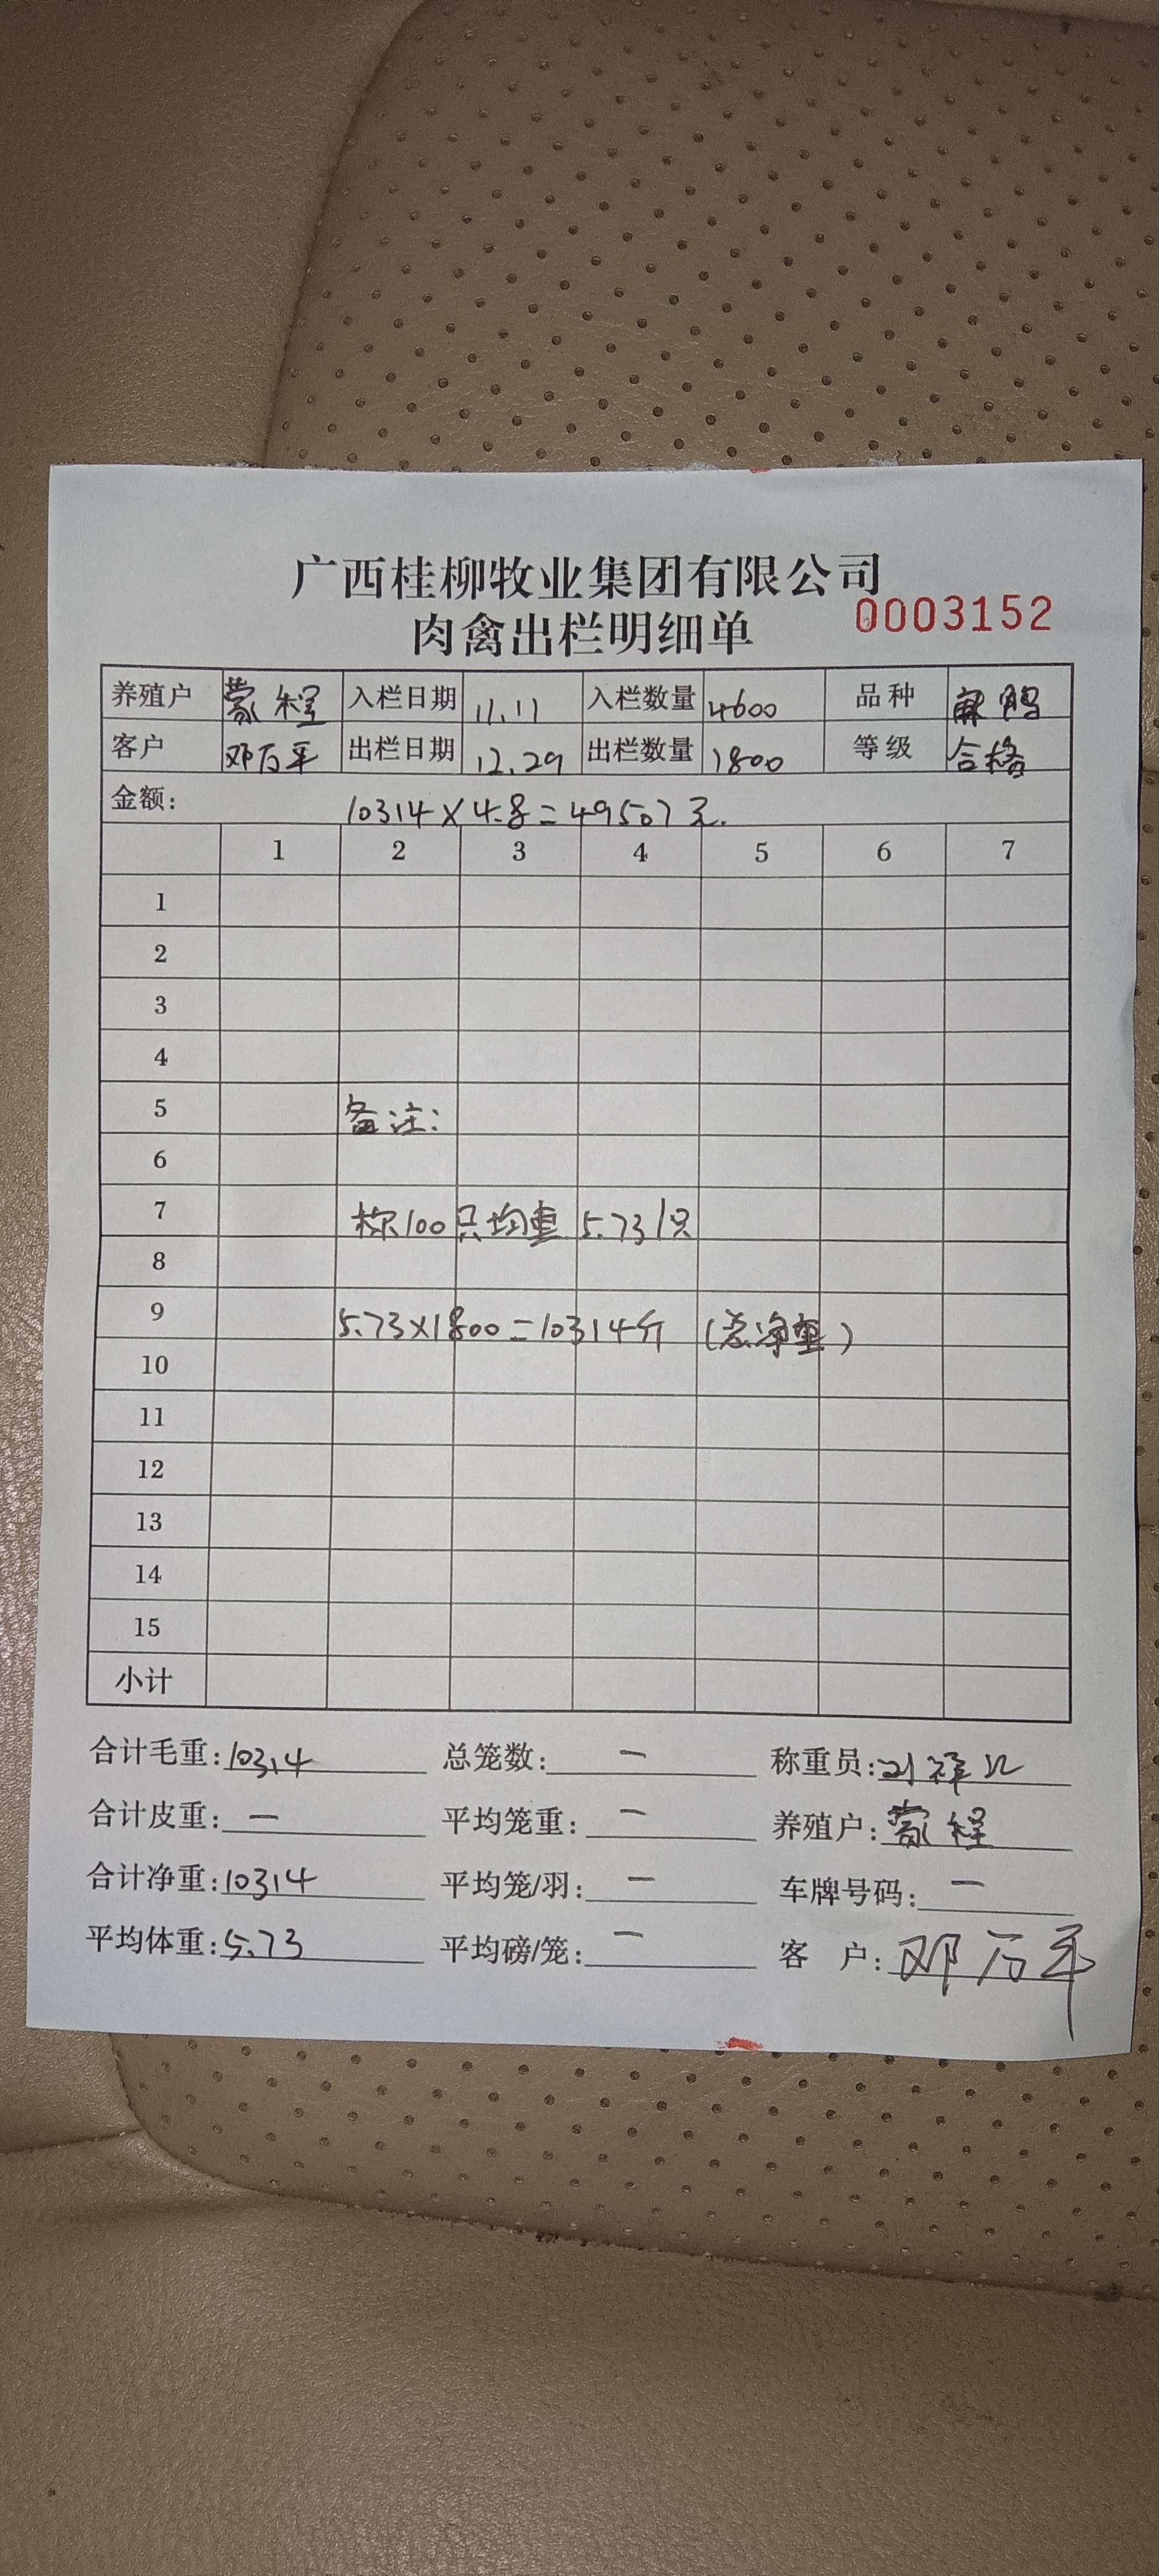 广西桂柳牧业集团有限公司
肉禽出栏明细单 0003152
养殖户 蒙程 入栏日期 11.11 入栏数量 4600 品种 麻鸭
客户 邓万平 出栏日期 12.29 出栏数量 1800 等级 合格
金额: 10314×4.8=49507元.
1 2 3 4 5 6 7
1
2
3
4
5 备注:
6
7 称100只均重5.73/只
8
9 5.73×1800=10314斤 (总净重)
10
11
12
13
14
15
小计
合计毛重:10314 总笼数:一 称重员:刘祥
合计皮重:一 平均笼重:一 养殖户:蒙程
合计净重:10314 平均笼/羽:一 车牌号码:一
平均体重:5.73 平均磅/笼:一 客 户:邓万平